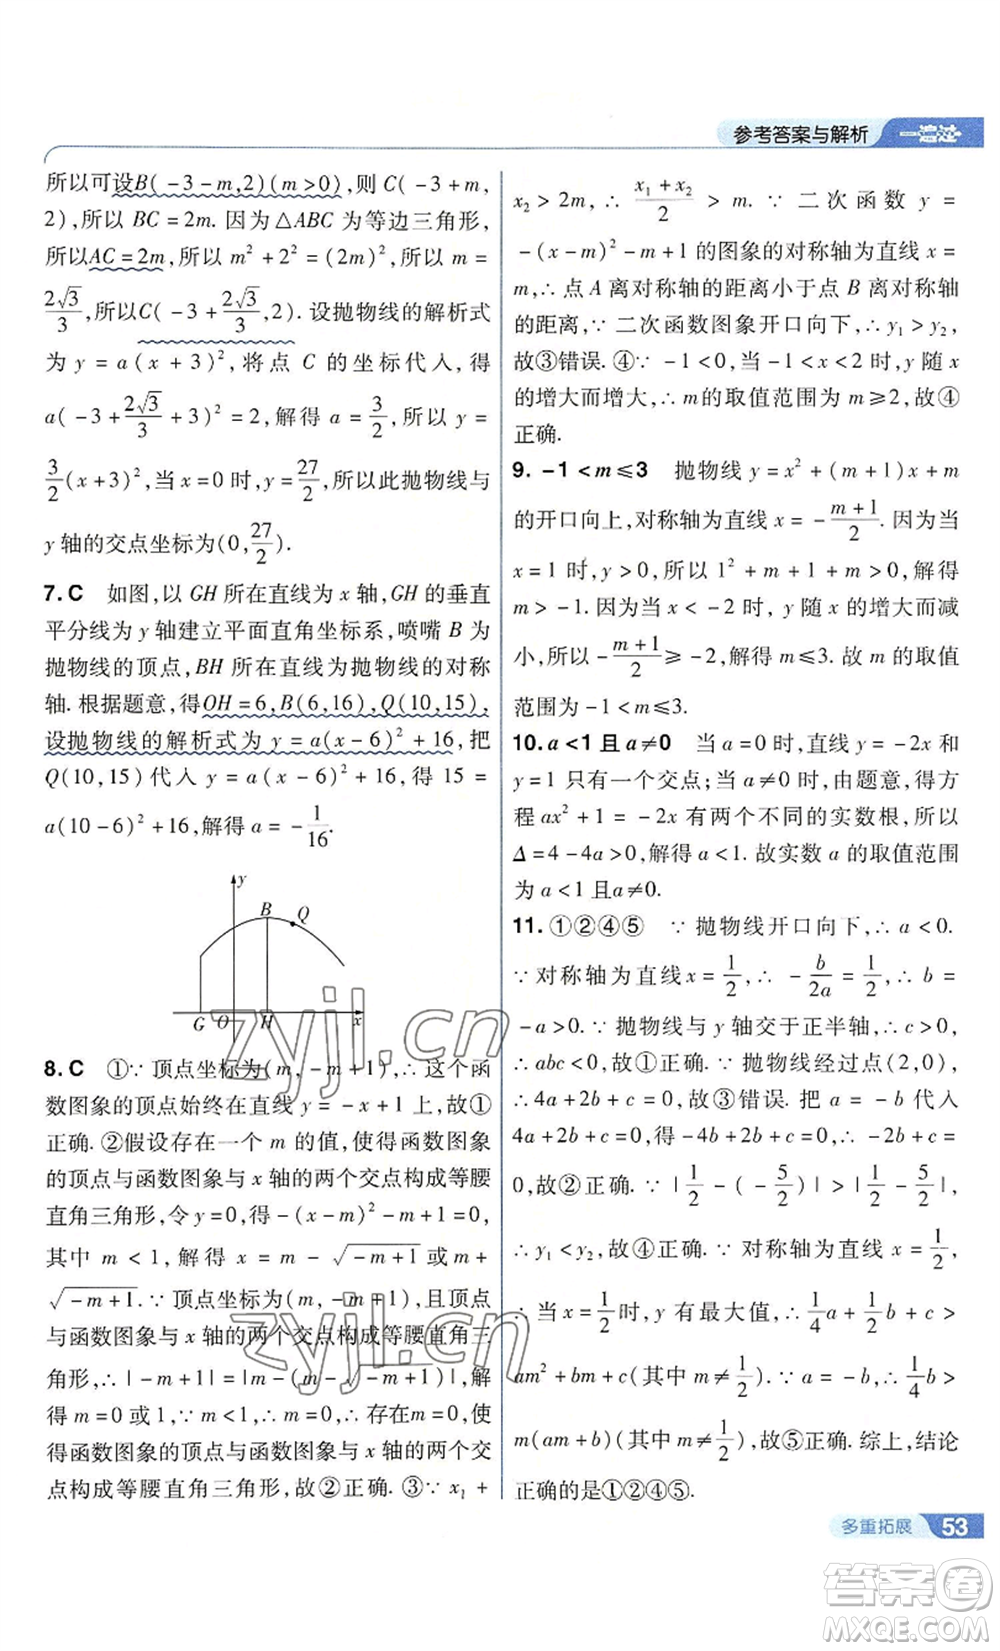 参考答案与解析 一遍过
所以可设B(-3-m,2)(m>0),则C(-3+m,
2),所以BC=2m.因为△ABC为等边三角形,
所以AC=2m,所以m²+2²=(2m)²,所以m=
2√3/3,所以C(-3+2√3/3,2).设抛物线的解析式
为y=a(x+3)²,将点C的坐标代入,得
a(-3+2√3/3+3)²=2,解得a=3/2,所以y=
3/2(x+3)²,当x=0时,y=27/2,所以此抛物线与
y轴的交点坐标为(0,27/2).
7.C 如图,以GH所在直线为x轴,GH的垂直
平分线为y轴建立平面直角坐标系,喷嘴B为
抛物线的顶点,BH所在直线为抛物线的对称
轴.根据题意,得OH=6,B(6,16),Q(10,15),
设抛物线的解析式为y=a(x-6)²+16,把
Q(10,15)代入y=a(x-6)²+16,得15=
a(10-6)²+16,解得a=-1/16.
y
B
Q
G
O
H
x
8.C ①∵顶点坐标为(m,-m+1),∴这个函
数图象的顶点始终在直线y=-x+1上,故①
正确.②假设存在一个m的值,使得函数图象
的顶点与函数图象与x轴的两个交点构成等腰
直角三角形,令y=0,得-(x-m)²-m+1=0,
其中m<1,解得x=m-√(-m+1)或m+
√(-m+1).∵顶点坐标为(m,-m+1),且顶点
与函数图象与x轴的两个交点构成等腰直角三
角形,∴|-m+1|=|√(-m+1)|,解
得m=0或1(舍去),∴存在m=0,使
得函数图象的顶点与函数图象与x轴的两个交
点构成等腰直角三角形,故②正确.③∵x₁+
x₂>2m,∴(x₁+x₂)/2>m.∵二次函数y=
-(x-m)²-m+1的图象的对称轴为直线x=
m,∴点A离对称轴的距离小于点B离对称轴
的距离,∵二次函数图象开口向下,∴y₁>y₂,
故③错误.④∵-1<0,当-1<x<2时,y随x
的增大而增大,∴m的取值范围为m≥2,故④
正确.
9.-1<m≤3 抛物线y=x²+(m+1)x+m
的开口向上,对称轴为直线x=-(m+1)/2.因为当
x=1时,y>0,所以1²+m+1+m>0,解得m
>-1.因为x<-2时,y随x的增大而减
小,所以-(m+1)/2≥-2,解得m≤3.故m的取值
范围为-1<m≤3.
10.a<1且a≠0 当a=0时,直线y=-2x和
y=1只有一个交点;当a≠0时,由题意,得方
程ax²+1=-2x有两个不同的实数根,所以
Δ=4-4a>0,解得a<1.故实数a的取值范围
为a<1且a≠0.
11.①②④⑤ ∵抛物线开口向下,∴a<0.
∵对称轴为直线x=1/2,∴-b/2a=1/2,∴b=
-a>0.∵抛物线与y轴交于正半轴,∴c>0,
∴abc<0,故①正确.∵抛物线经过点(2,0),
∴4a+2b+c=0,故③错误.把a=-b代入
4a+2b+c=0,得-4b+2b+c=0,∴-2b+c=
0,故②正确.∵|1/2-(-5/2)|>|1/2-5/2|,
∴y₁<y₂,故④正确.∵对称轴为直线x=1/2,
∴当x=1/2时,y有最大值,∴1/4a+1/2b+c>
am²+bm+c(其中m≠1/2).∵a=-b,∴1/4b>
m(am+b)(其中m≠1/2),故⑤正确.综上,结论
正确的是①②④⑤.
多重拓展 53
zyjl.cn
zyjl.cn
答案卷
MXQE.COM